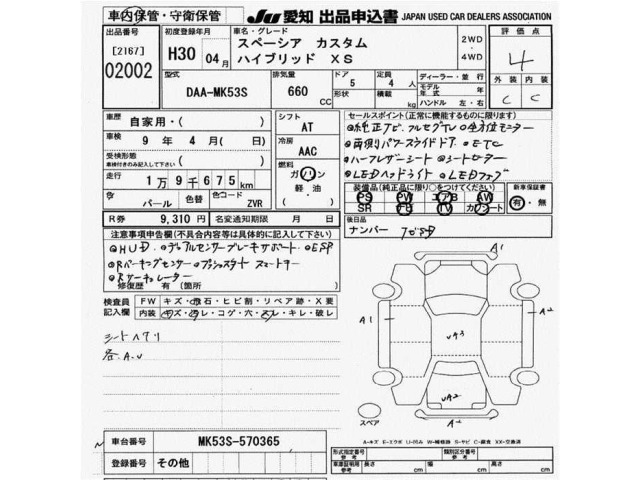 車内保管・守衛保管
JU 愛知 出品申込書 JAPAN USED CAR DEALERS ASSOCIATION
出品番号 [2167] 02002
初度登録年月 H30 04月
車名・グレード スペーシア カスタム ハイブリッド XS
2WD・4WD
評価点 4
外装 C 内装 C
型式 DAA-MK53S
排気量 660 CC
ドア 5 形状
定員 4人 積載 kg
ディーラー・並行
モデル年式 年
ハンドル 左・右
車歴 自家用・( )
車検 9年 4月( 日)
受検形態 車検付きのみ記入して下さい ( )
走行 1万9千675km
色 パール 色替 色コード ZVR
シフト AT
冷房 AAC
燃料 ガ・ハ 軽油・( )
セールスポイント(正常に機能するものに限ります)
◎純正ナビ・フルセグTV ◎全方位モニター
◎両側パワースライドドア ◎ETC
◎ハーフレザーシート ◎シートヒーター
◎LEDヘッドライト ◎LEDフォグ
装備品(純正品に限り○をつけてください)
PS PW エアB AW
SR TV カワシート
新車保証書 有・無
R券 9,310円 名変通知期限 月 日
後日品 ナンバー
注意事項申告欄(不具合内容等は具体的に記入して下さい)
◎HUD ◎デュアルセンサーブレーキサポート ◎ESP
◎Rパーキングセンサー ◎プッシュスタート スマートキー
◎Rサーキュレーター
修復歴 有(箇所 )
検査員記入欄
FW キズ・飛石・ヒビ割・リペア跡・X要
内装 キズ・汚レ・コゲ・穴・スレ・キレ・破レ
シートヘタリ
各A.U
A1
A1
A2
UA3
UA2
A2
スペア
A-キズ E-エクボ U-凹み W-補修跡 S-サビ C-腐食 XX-交換済
車台番号 MK53S-570365
登録番号 その他
形式指定番号 参考
類別区分番号 参考
車庫証明用 参考 長さ cm 幅 cm 高さ cm